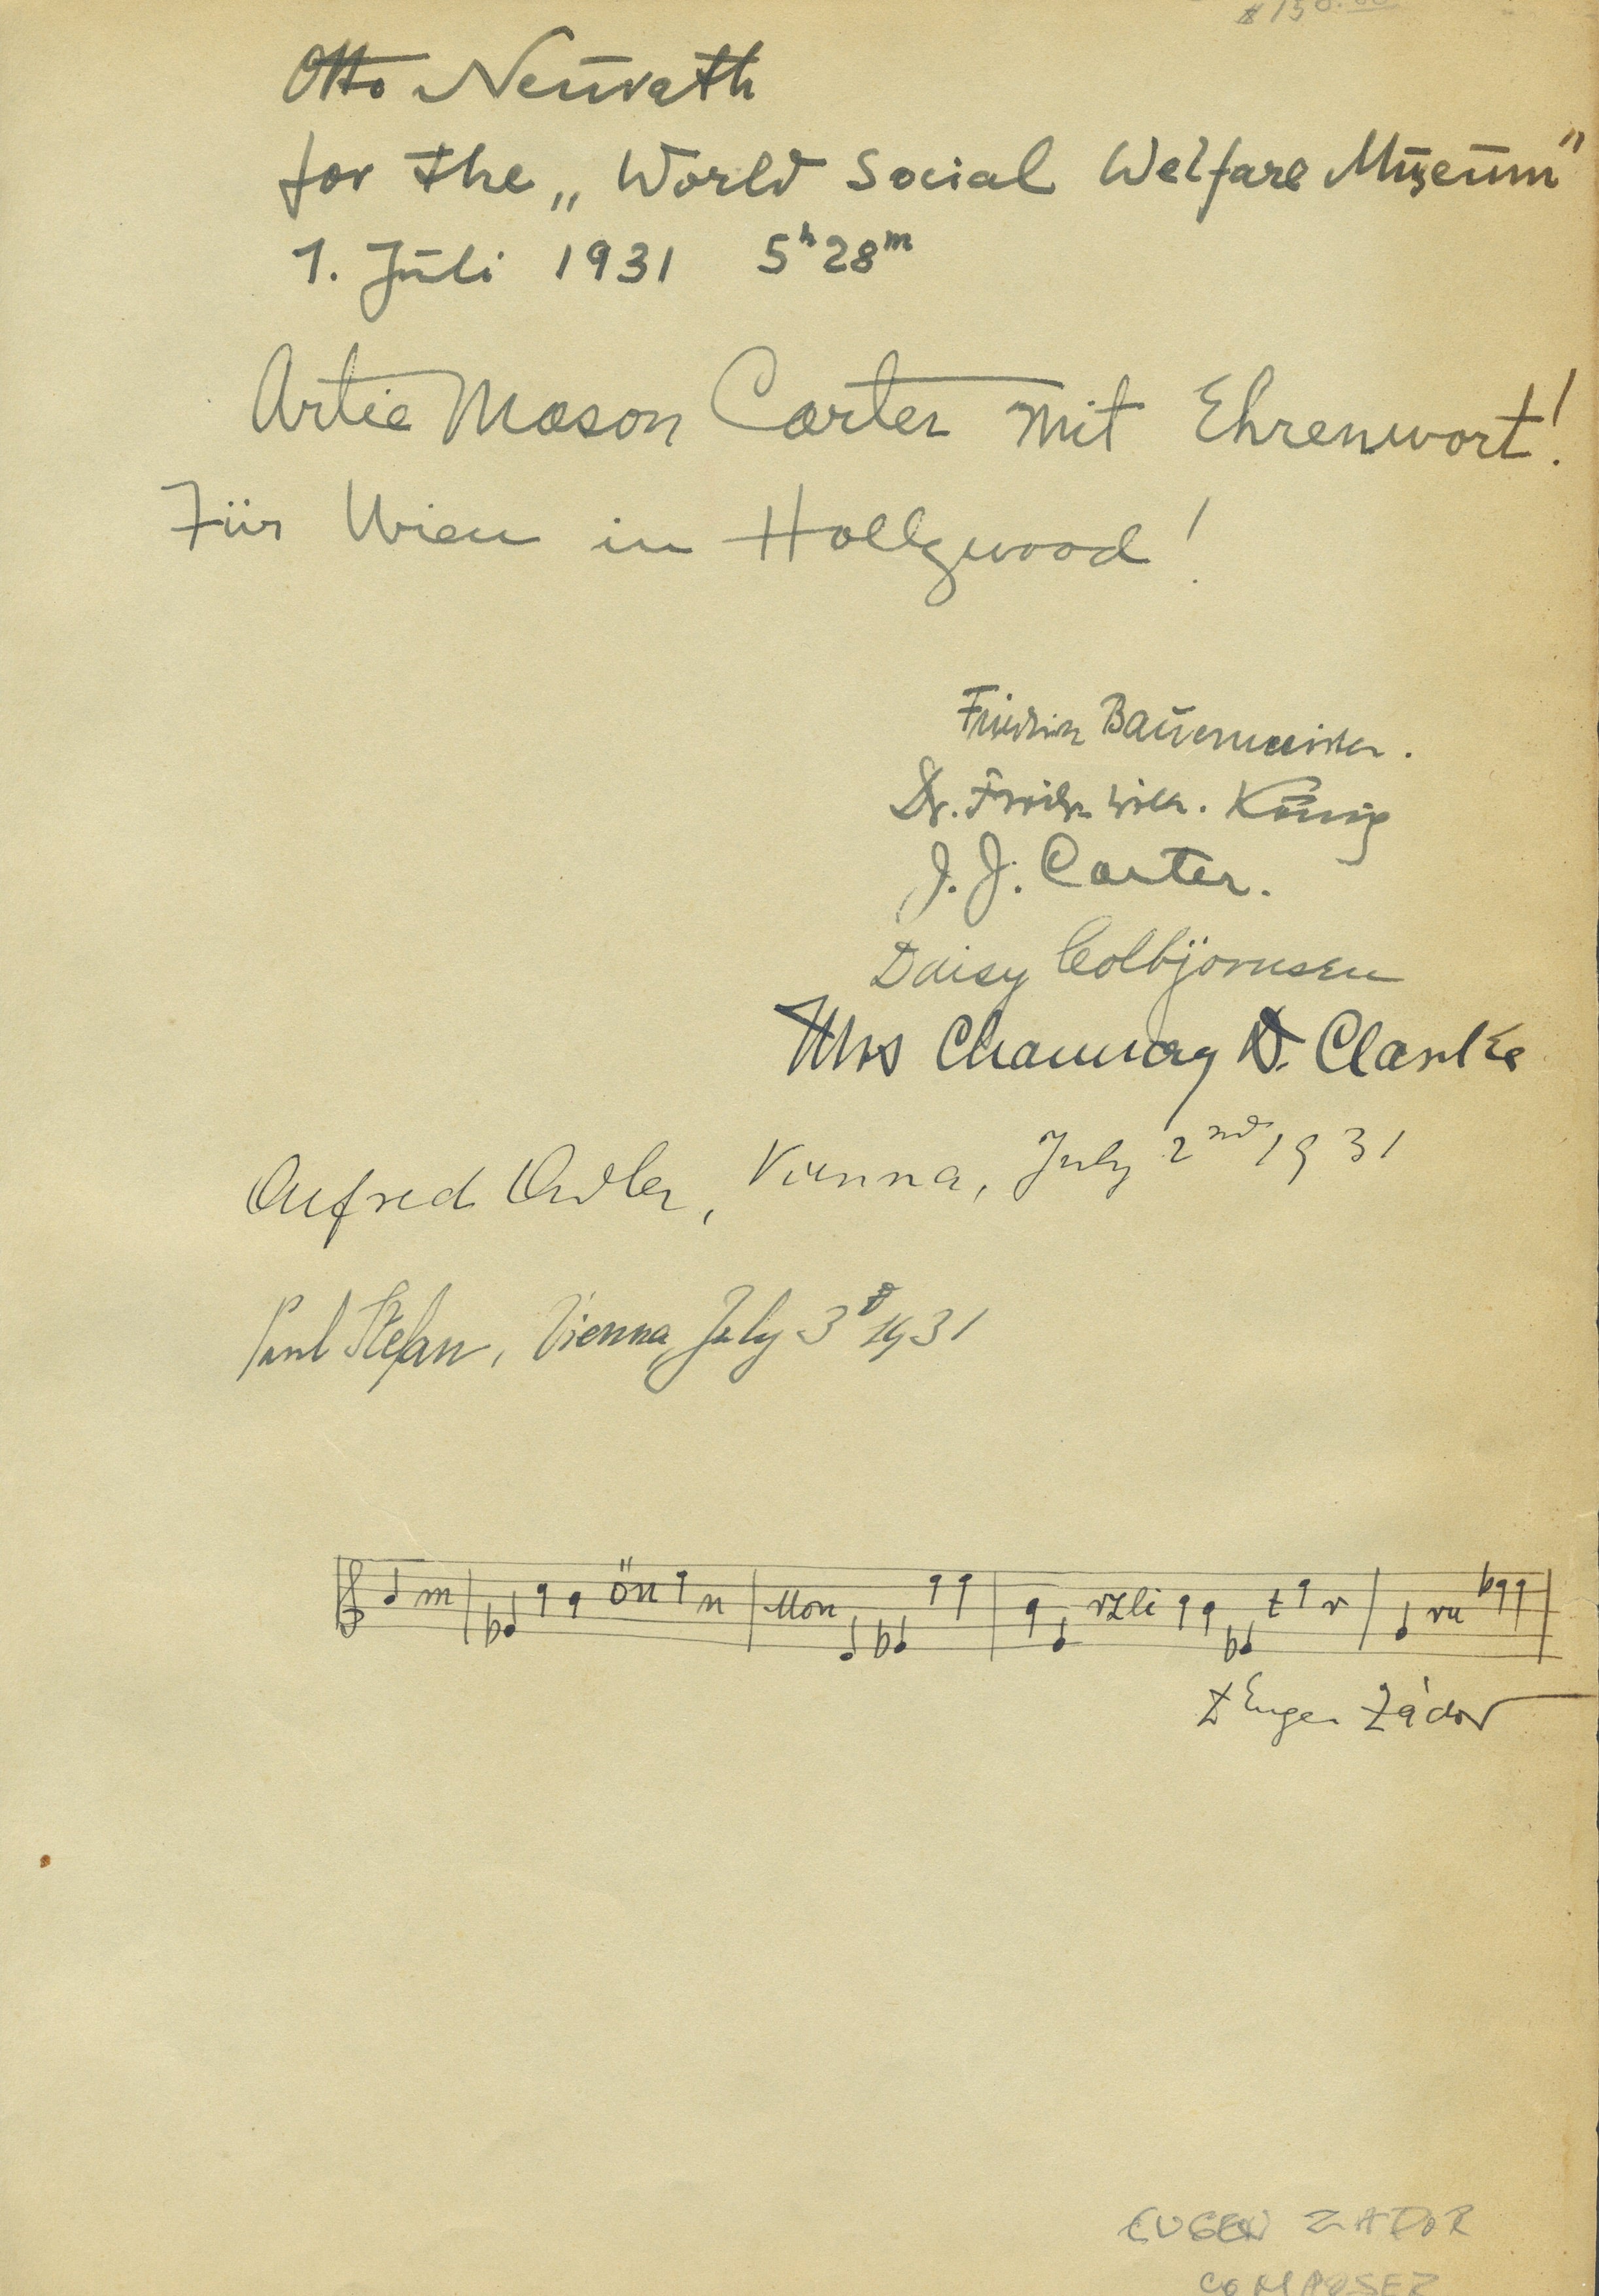 $150.00
Otto Neūrath
for the „World Social Welfare Mūseūm"
1. Jūli 1931 5h 28m
Artie Mason Carter mit Ehrenwort!
Für Wien in Hollywood!
Friedrich Baūermeister.
Dr. Friedr. Wilh. König
J. J. Carter.
Daisy Colbjörnsen
Mrs Chauncey D. Clarke
Alfred Adler, Vienna, July 2nd 1931
Paul Stefan, Vienna July 3d 1931
m ön n Mon rzli t r ru
Eugen Zádor
EUGEN ZADOR
COMPOSER